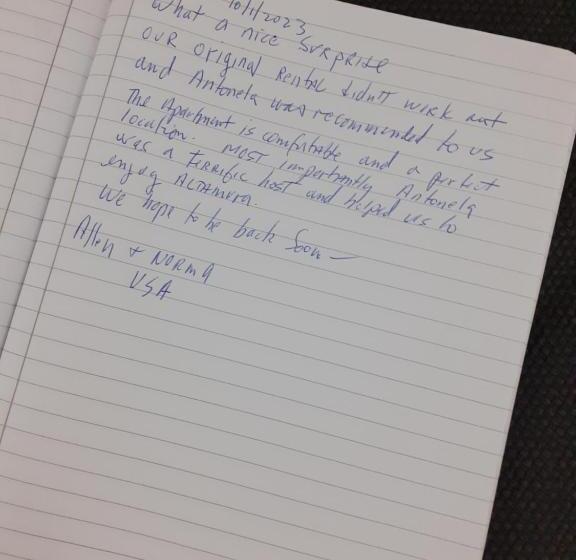 10/1/2023
What a nice SURPRISE
OUR Original Rental didn't work out
and Antonela was recommended to us
The Apartment is comfortable and a perfect
location. MOST importantly Antonela
was a TERRIFIC host and helped us to
enjoy ALTAMURA.
We hope to be back soon —
Allen + NORMA
USA